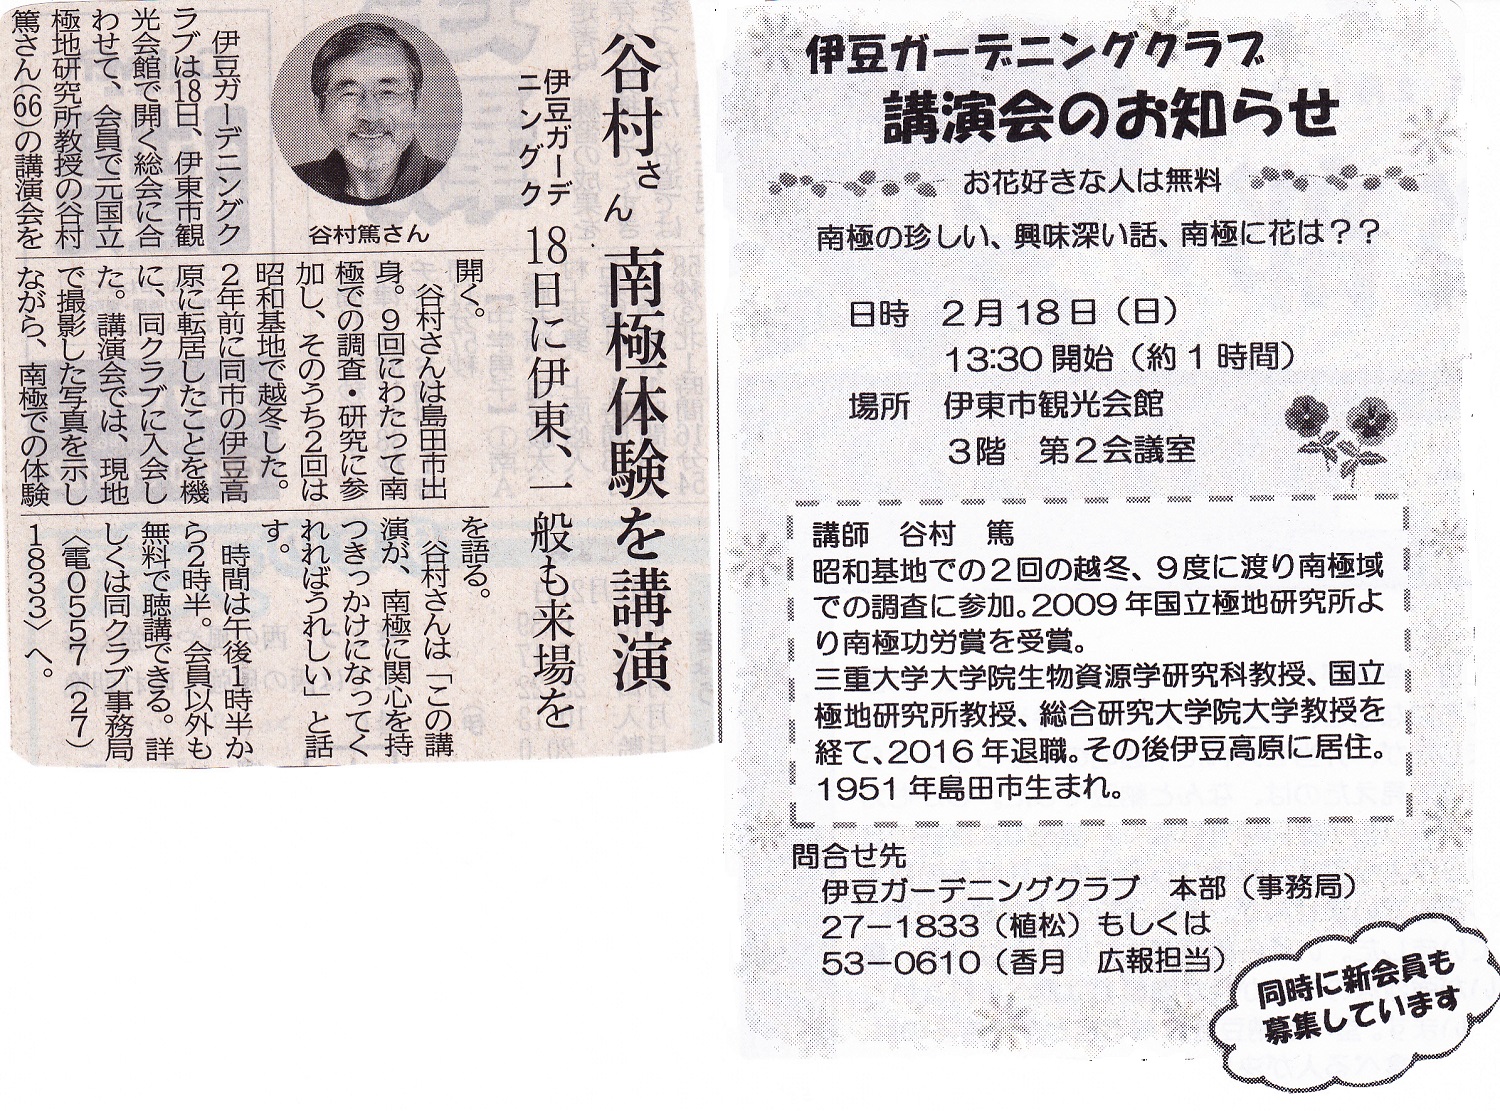 谷村さん 南極体験を講演
伊豆ガーデ
ニングク 18日に伊東、一般も来場を
谷村篤さん
伊豆ガーデニングク
ラブは18日、伊東市観
光会館で開く総会に合
わせて、会員で元国立
極地研究所教授の谷村
篤さん(66)の講演会を
開く。
谷村さんは島田市出
身。9回にわたって南
極での調査・研究に参
加し、そのうち2回は
昭和基地で越冬した。
2年前に同市の伊豆高
原に転居したことを機
に、同クラブに入会し
た。講演会では、現地
で撮影した写真を示し
ながら、南極での体験
を語る。
谷村さんは「この講
演が、南極に関心を持
つきっかけになってく
れればうれしい」と話
す。
時間は午後1時半か
ら2時半。会員以外も
無料で聴講できる。詳
しくは同クラブ事務局
〈電0557(27)
1833〉へ。
伊豆ガーデニングクラブ
講演会のお知らせ
お花好きな人は無料
南極の珍しい、興味深い話、南極に花は??
日時 2月18日(日)
13:30開始(約1時間)
場所 伊東市観光会館
3階 第2会議室
講師 谷村 篤
昭和基地での2回の越冬、9度に渡り南極域
での調査に参加。2009年国立極地研究所よ
り南極功労賞を受賞。
三重大学大学院生物資源学研究科教授、国立
極地研究所教授、総合研究大学院大学教授を
経て、2016年退職。その後伊豆高原に居住。
1951年島田市生まれ。
問合せ先
伊豆ガーデニングクラブ 本部(事務局)
27-1833(植松)もしくは
53-0610(香月 広報担当)
同時に新会員も
募集しています